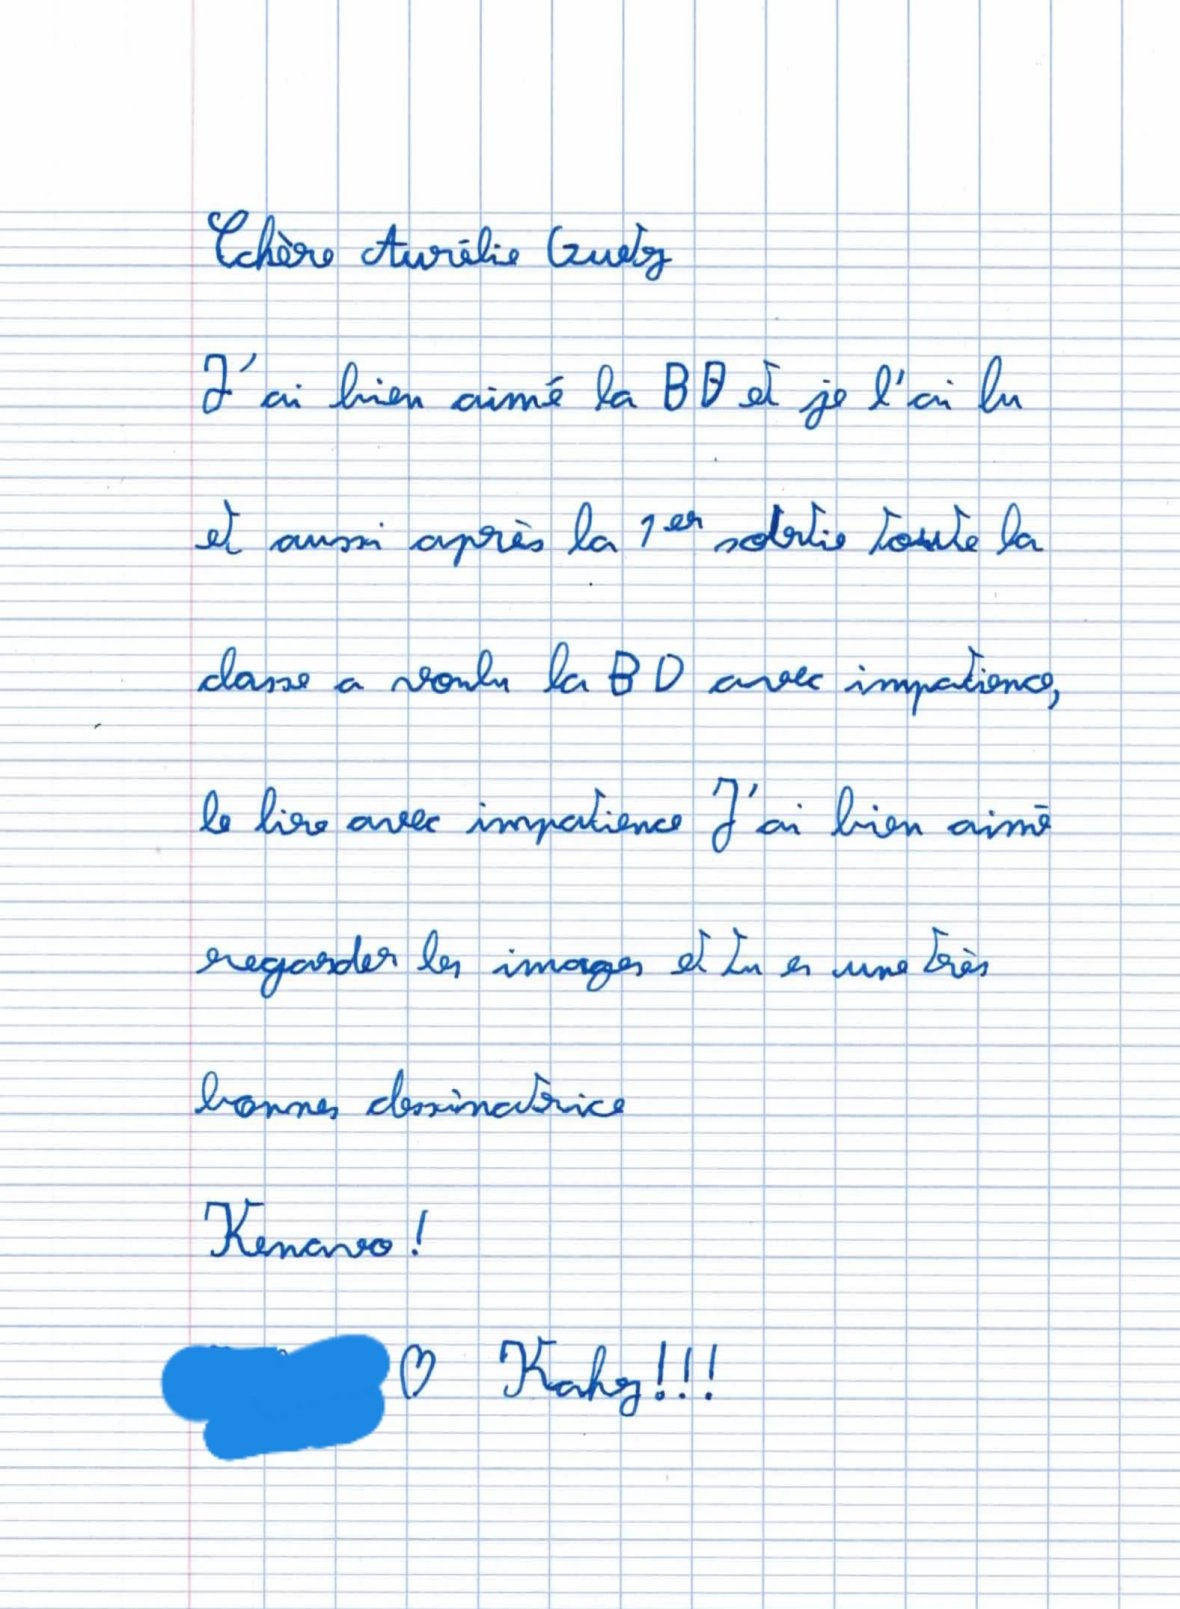 Chère Aurélie Guetz
J'ai bien aimé la BD et je l'ai lu
et aussi après la 1er sortie toute la
classe a voulu la BD avec impatience,
le lire avec impatience J'ai bien aimé
regarder les images et tu es une très
bonnes dessinatrice
Kenavo !
♡ Kahz!!!